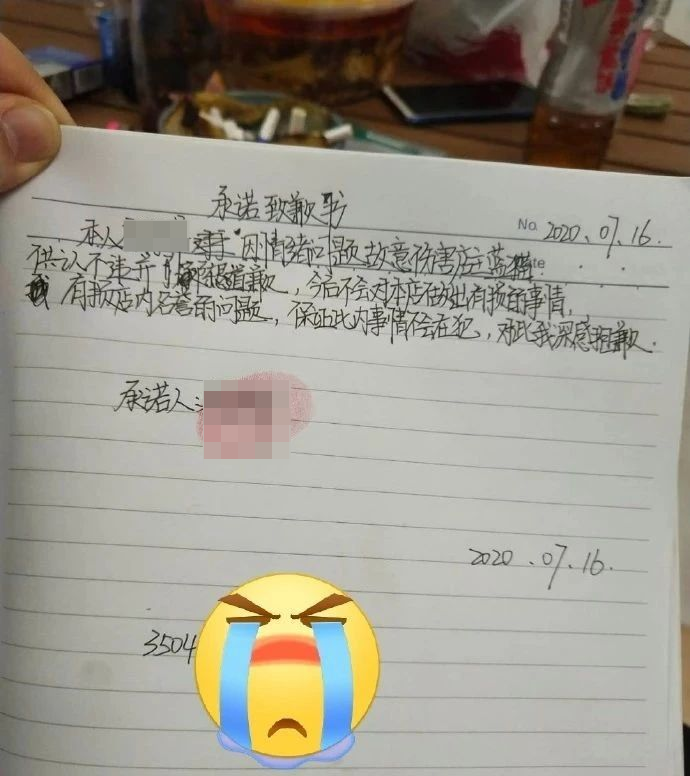 承诺致歉书
No. 2020.07.16.
本人 因情绪问题故意伤害店主蓝猫
ate
供认不讳并 道歉,今后不会对本店做出有损的事情,
有损店内名誉的问题,保证此内事情不会在犯,对此我深感抱歉.
承诺人:
2020.07.16.
3504